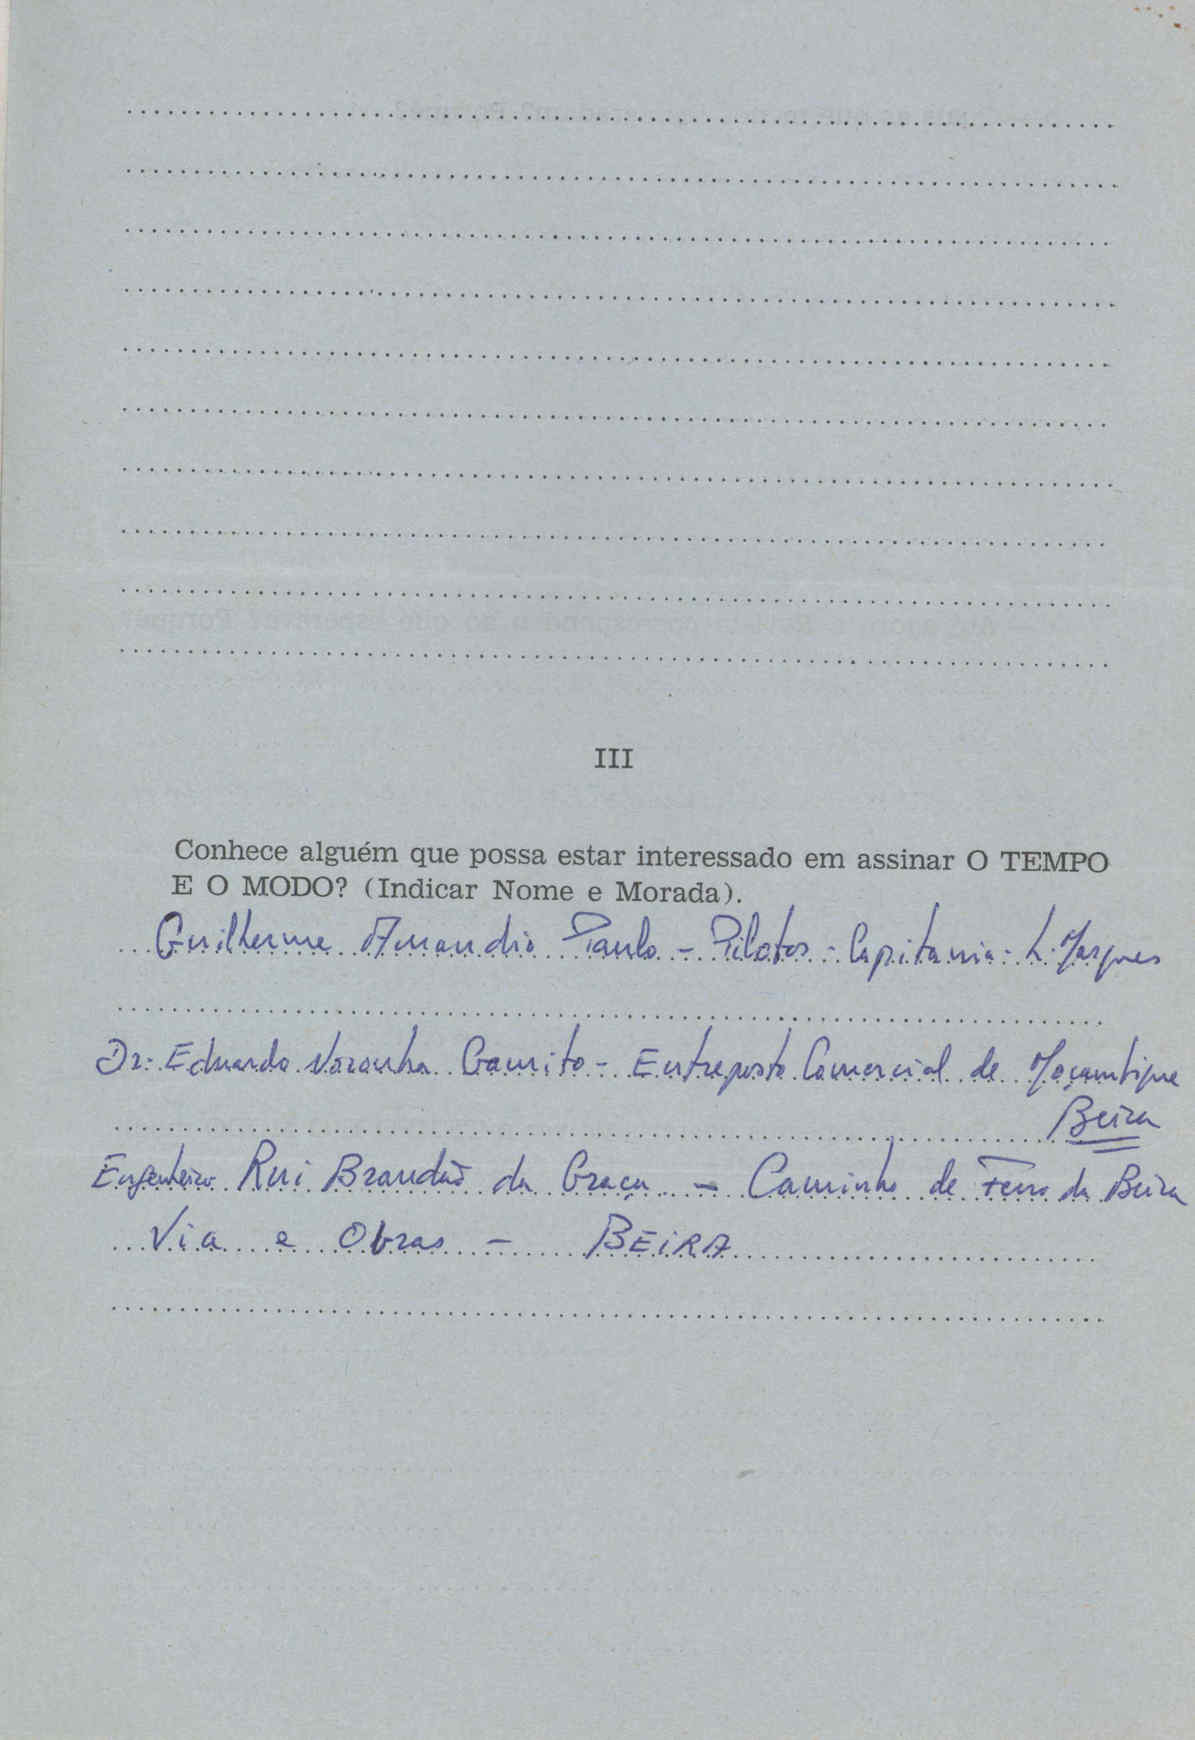 III
Conhece alguém que possa estar interessado em assinar O TEMPO
E O MODO? (Indicar Nome e Morada).
Guilherme Amandio Paulo - Pilotos - Capitania - L. Marques
Dr. Eduardo Noronha Gamito - Entreposto Comercial de Moçambique
Beira
Engenheiro Rui Brandão da Graça - Caminho de Ferro da Beira
Via e Obras - BEIRA